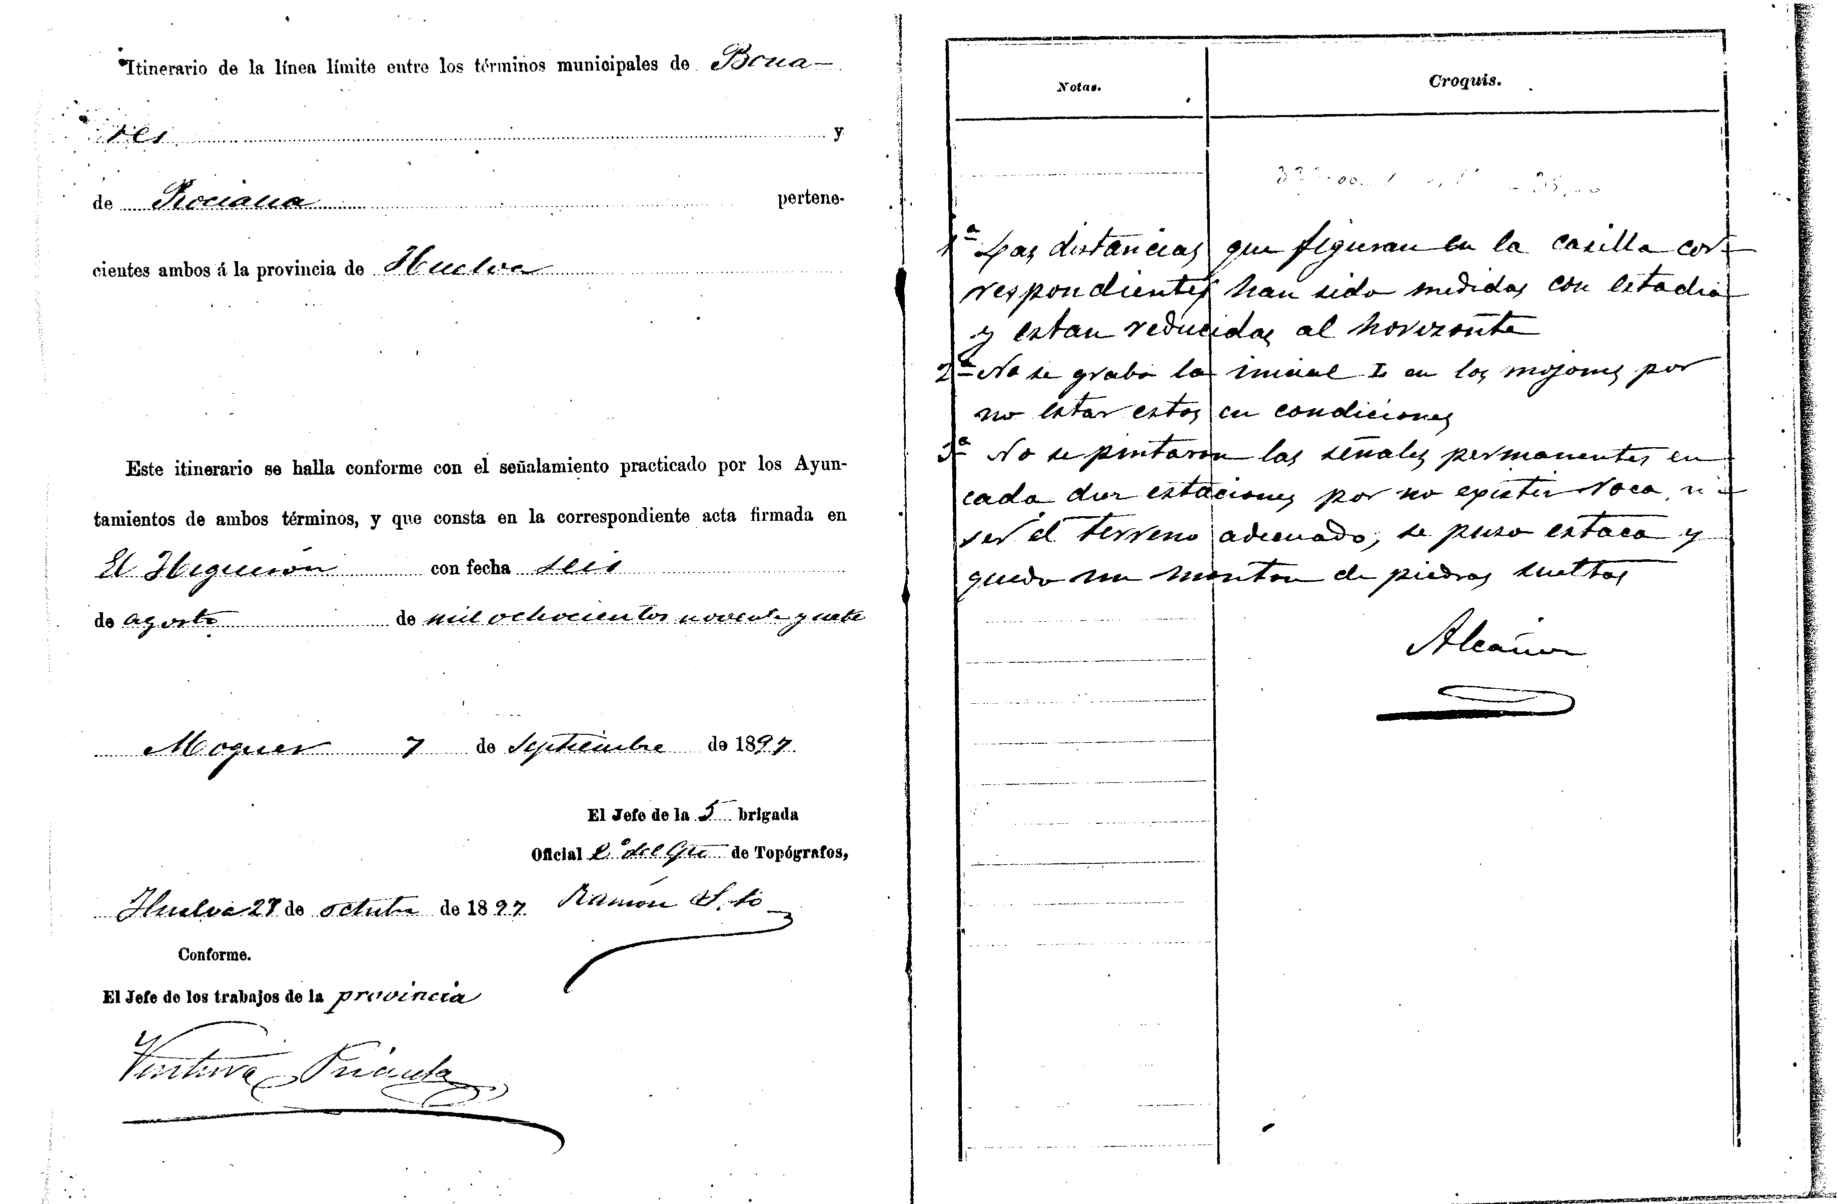 Itinerario de la línea límite entre los términos municipales de Bona-
res y
de Rociana pertene-
cientes ambos á la provincia de Huelva
Este itinerario se halla conforme con el señalamiento practicado por los Ayun-
tamientos de ambos términos, y que consta en la correspondiente acta firmada en
El Higuerón con fecha seis
de agosto de mil ochocientos noventa y siete
Moguer 7 de Septiembre de 1897.
El Jefe de la 5 brigada
Oficial 2º del de Topógrafos,
Huelva 27 de octubre de 1897.
Ramón
Conforme.
El Jefe de los trabajos de la provincia
Ventura
Notas. Croquis.
1ª Las distancias que figuran en la casilla cor-
respondientes han sido medidas con estadia
y estan reducidas al horizonte
2ª No se grabó la inicial I en los mojones por
no estar estos en condiciones
3ª No se pintaron las señales permanentes en
cada diez estaciones por no existir roca, ni
ser el terreno adecuado; se puso estaca y
quedo un monton de piedras sueltas